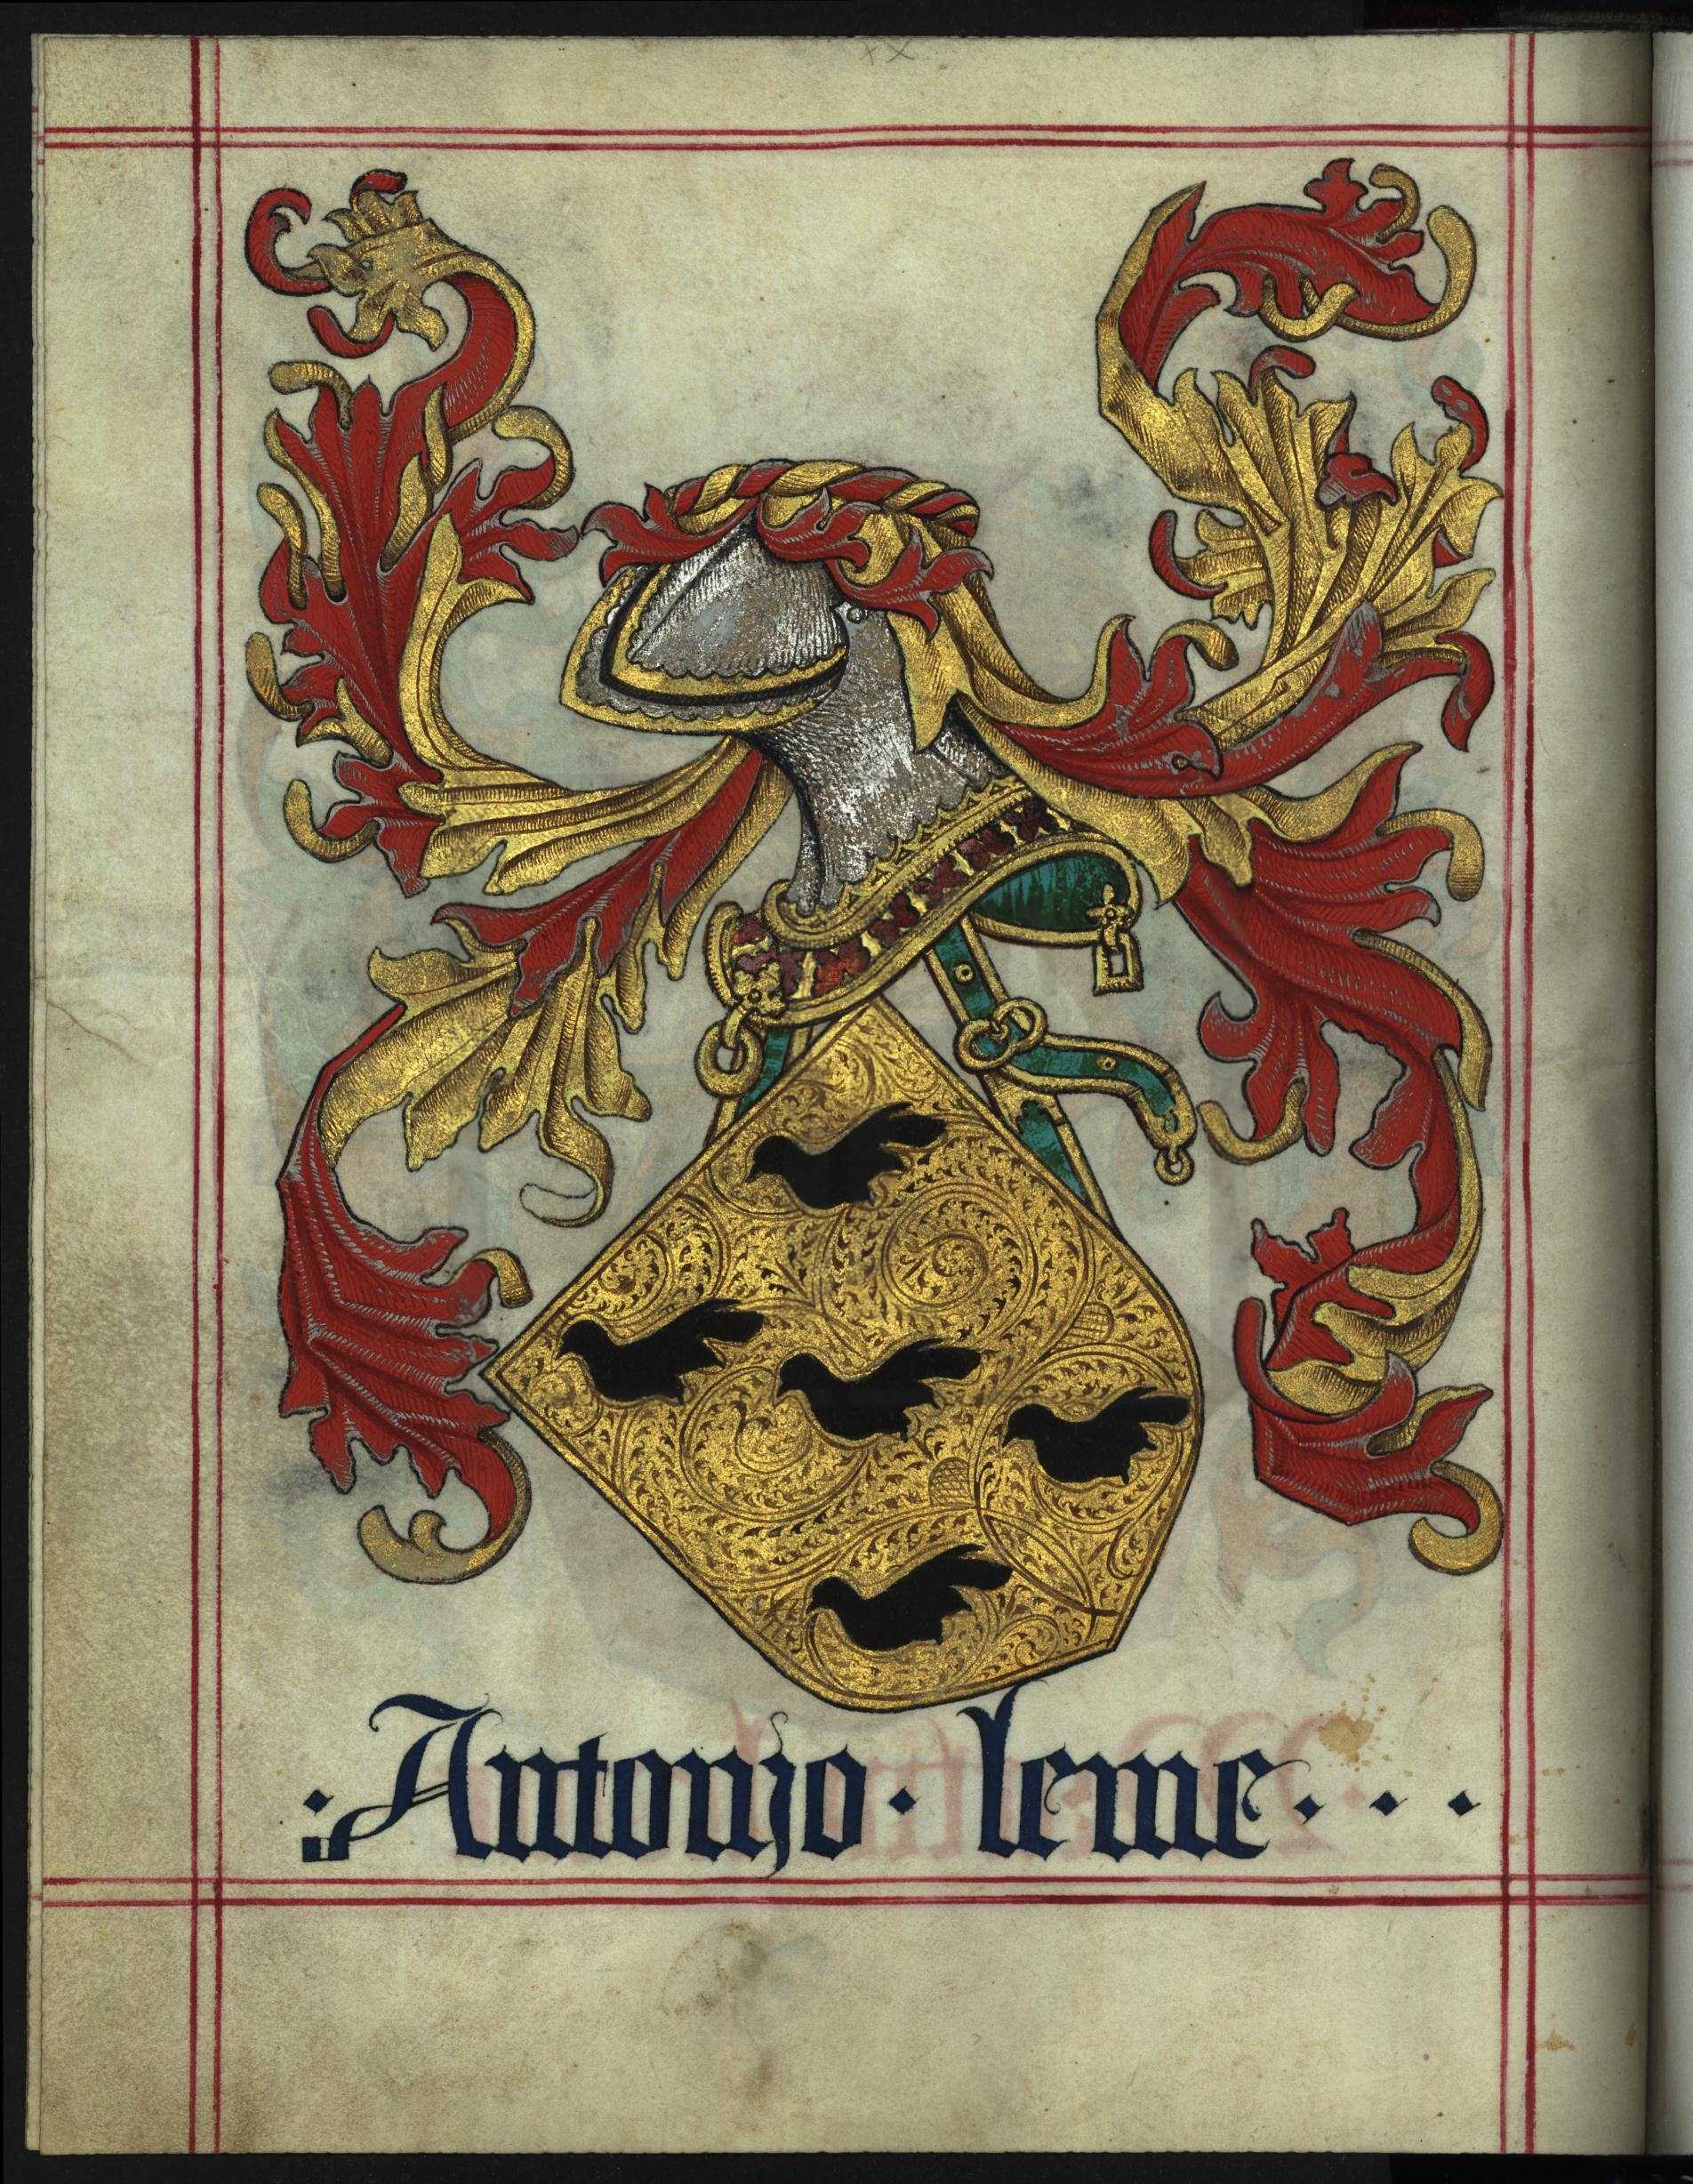 · Antonjo · leme · · ·